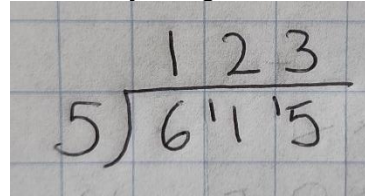 123
5)6¹1¹5